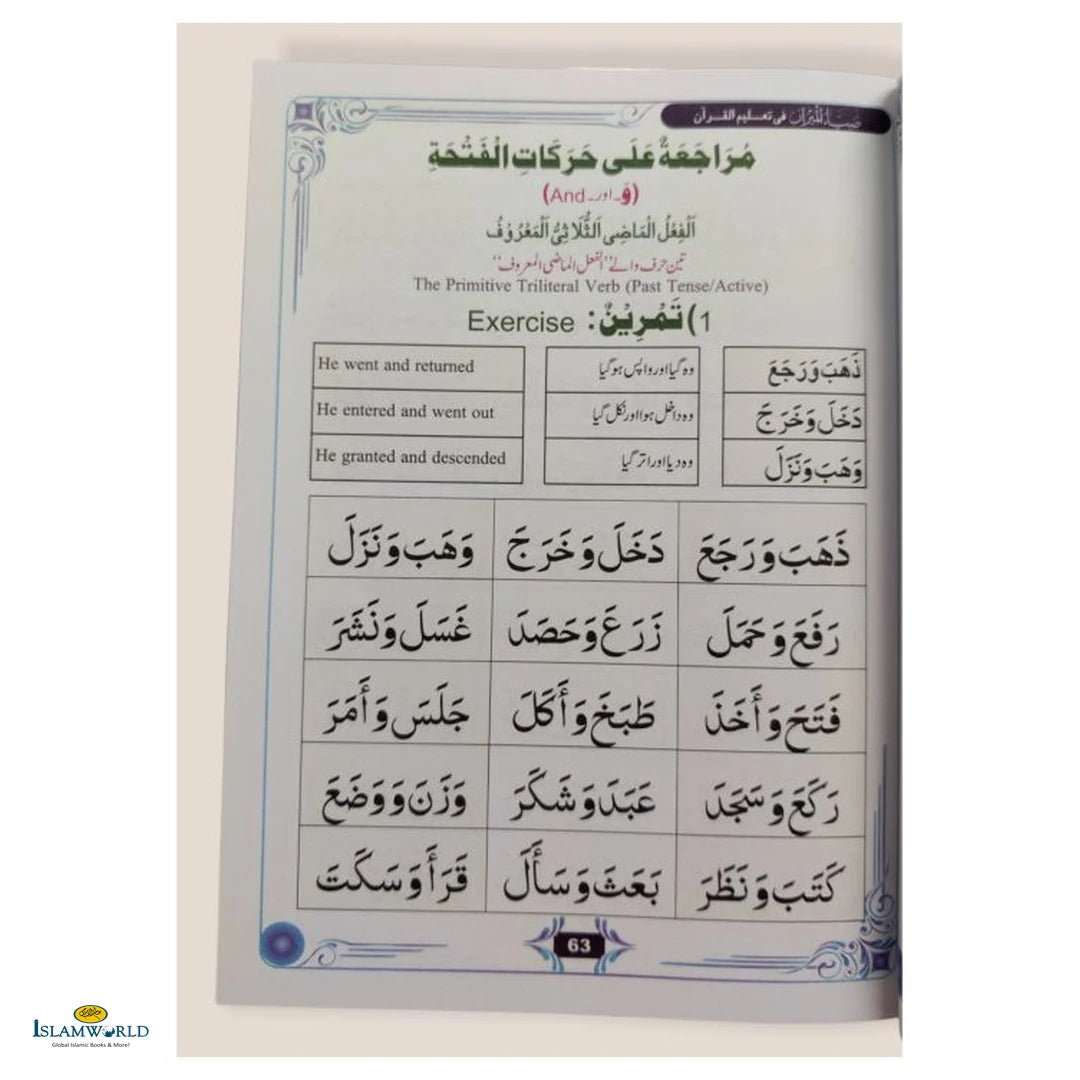 ضیاء المیزان فی تعلیم القرآن
مُرَاجَعَةٌ عَلَى حَرَكَاتِ الْفَتْحَةِ
(وَ۔ اور۔ And)
اَلْفِعْلُ الْمَاضِی اَلثُّلَاثِیُّ الْمَعْرُوْفُ
تین حرف والے ’’الفعل الماضی المعروف‘‘
The Primitive Triliteral Verb (Past Tense/Active)
1) تَمْرِیْنٌ : Exercise
ذَهَبَ وَرَجَعَ وہ گیا اور واپس ہو گیا He went and returned
دَخَلَ وَخَرَجَ وہ داخل ہوا اور نکل گیا He entered and went out
وَهَبَ وَنَزَلَ وہ دیا اور اتر گیا He granted and descended
ذَهَبَ وَرَجَعَ دَخَلَ وَخَرَجَ وَهَبَ وَنَزَلَ
رَفَعَ وَحَمَلَ زَرَعَ وَحَصَدَ غَسَلَ وَنَشَرَ
فَتَحَ وَأَخَذَ طَبَخَ وَأَكَلَ جَلَسَ وَأَمَرَ
رَكَعَ وَسَجَدَ عَبَدَ وَشَكَرَ وَزَنَ وَوَضَعَ
كَتَبَ وَنَظَرَ بَعَثَ وَسَأَلَ قَرَأَ وَسَكَتَ
63
ISLAMWORLD
Global Islamic Books & More!